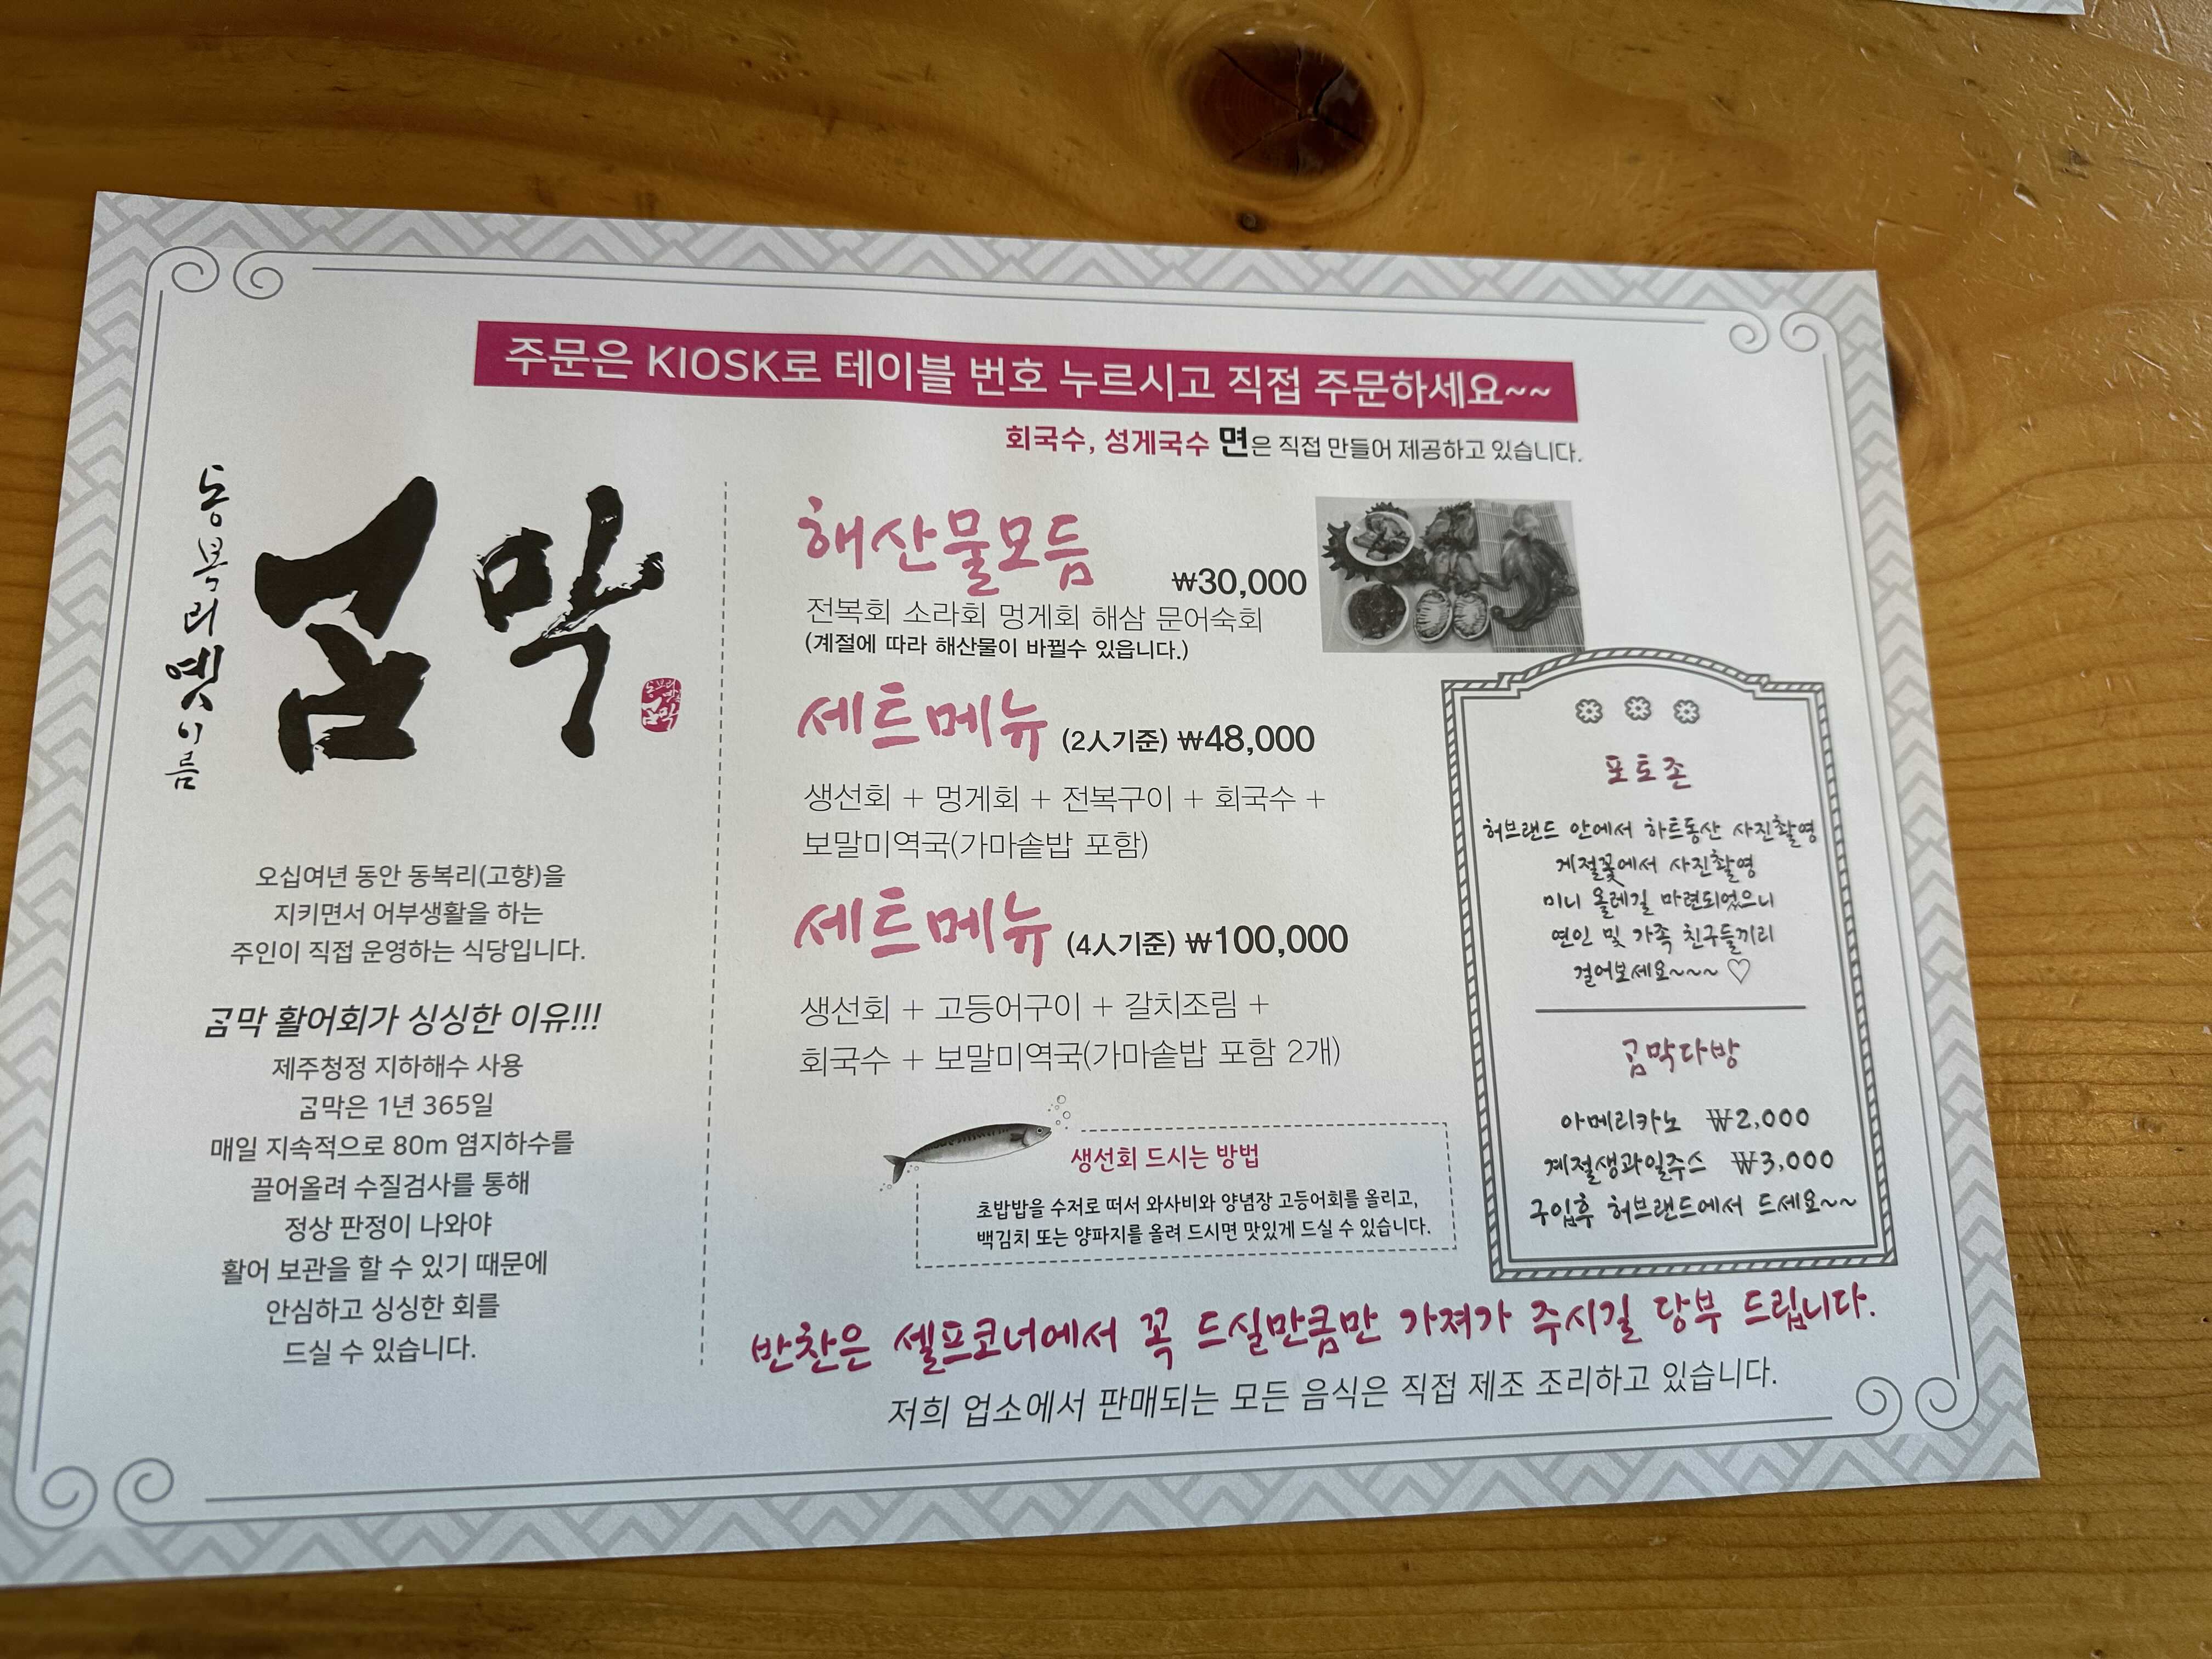 주문은 KIOSK로 테이블 번호 누르시고 직접 주문하세요~~
회국수, 성게국수 면은 직접 만들어 제공하고 있습니다.
동복리 옛이름
곰막
오십여년 동안 동복리(고향)을
지키면서 어부생활을 하는
주인이 직접 운영하는 식당입니다.
곰막 활어회가 싱싱한 이유!!!
제주청정 지하해수 사용
곰막은 1년 365일
매일 지속적으로 80m 염지하수를
끌어올려 수질검사를 통해
정상 판정이 나와야
활어 보관을 할 수 있기 때문에
안심하고 싱싱한 회를
드실 수 있습니다.
해산물모듬
₩30,000
전복회 소라회 멍게회 해삼 문어숙회
(계절에 따라 해산물이 바뀔수 있읍니다.)
세트메뉴 (2人기준) ₩48,000
생선회 + 멍게회 + 전복구이 + 회국수 +
보말미역국(가마솥밥 포함)
세트메뉴 (4人기준) ₩100,000
생선회 + 고등어구이 + 갈치조림 +
회국수 + 보말미역국(가마솥밥 포함 2개)
생선회 드시는 방법
초밥밥을 수저로 떠서 와사비와 양념장 고등어회를 올리고,
백김치 또는 양파지를 올려 드시면 맛있게 드실 수 있습니다.
포토존
허브랜드 안에서 하트동산 사진촬영
계절꽃에서 사진촬영
미니 올레길 마련되었으니
연인 및 가족 친구들끼리
걸어보세요~~~ ♡
곰막다방
아메리카노 ₩2,000
계절생과일주스 ₩3,000
구입후 허브랜드에서 드세요~~
반찬은 셀프코너에서 꼭 드실만큼만 가져가 주시길 당부 드립니다.
저희 업소에서 판매되는 모든 음식은 직접 제조 조리하고 있습니다.